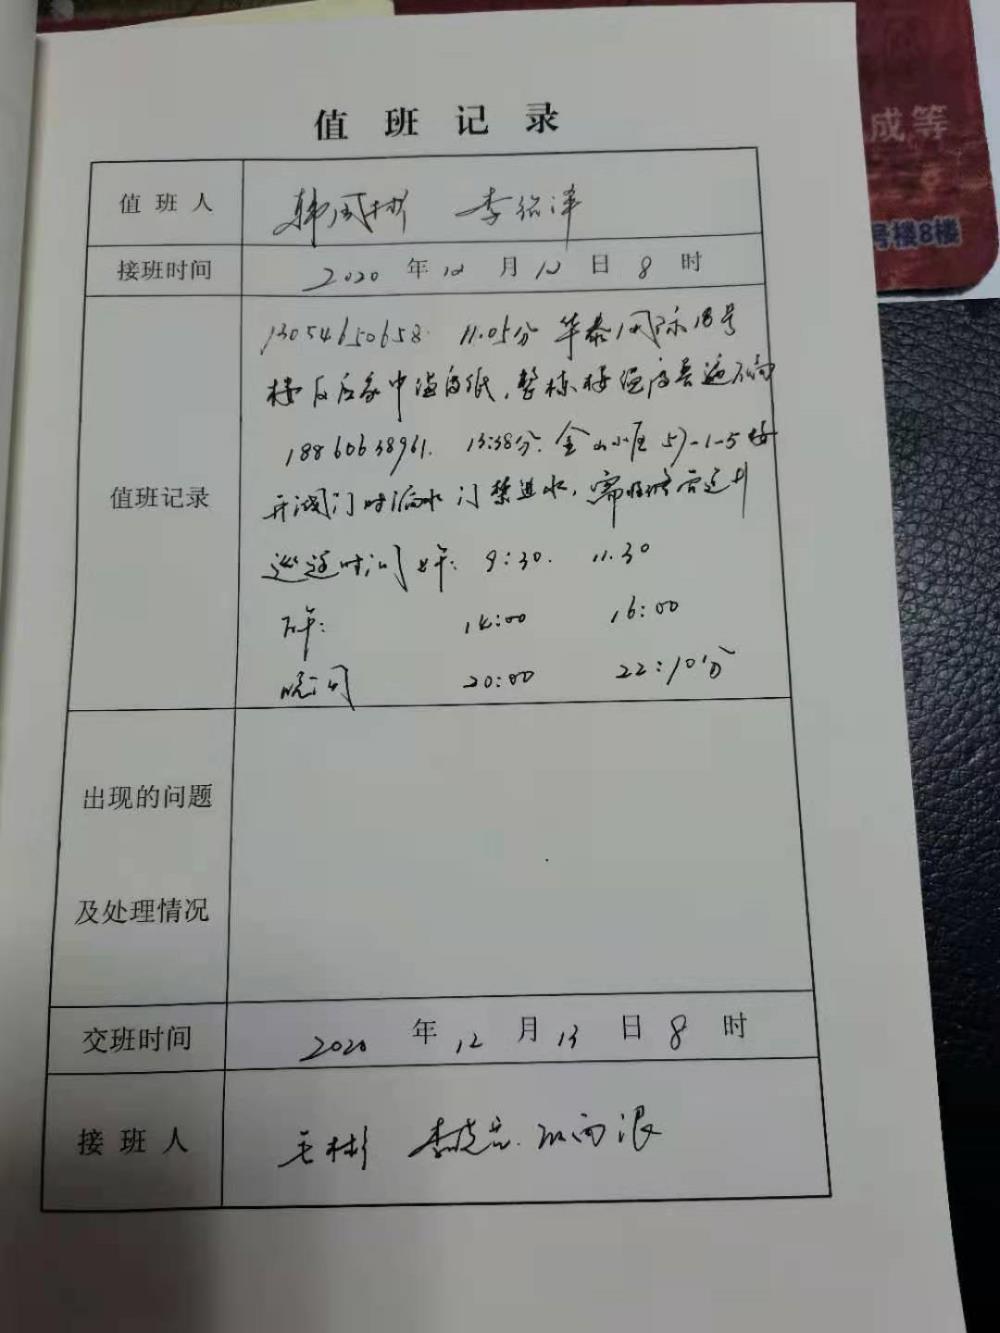 成等
号楼8楼
值班记录
值班人 韩凤彬 李绍泽
接班时间 2020年12月12日8时
值班记录
13054650658. 11.05分 华泰国际18号
楼反应家中温度低,整栋楼温度普遍不高
18860638961. 13:38分. 金山小区 57-1-5楼
开阀门时漏水 门禁进水,需
巡逻时间 上午: 9:30. 11.30
下午: 14:00 16:00
晚间 20:00 22:10分
出现的问题
及处理情况
交班时间 2020年12月13日8时
接班人 王彬 李晓